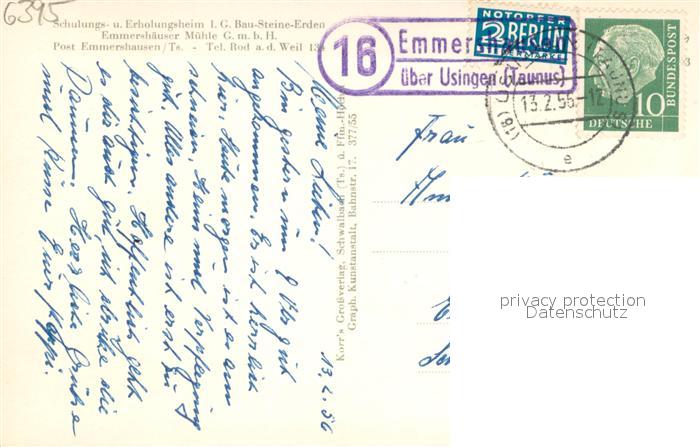 6395
Schulungs- u. Erholungsheim I. G. Bau-Steine-Erden
Emmershäuser Mühle G. m. b. H.
Post Emmershausen/Ts. - Tel. Rod a. d. Weil 13
16
Emmershausen
über Usingen (Taunus)
NOTOPFER
2 BERLIN
STEUERMARKE
10
DEUTSCHE
BUNDESPOST
(16)
13.2.56.-12
e
13.2.56
Meine Lieben!
Bin gestern um 9 Uhr gut
angekommen. Es ist herrlich
hier. Heute morgen ist es am
schneien. Heim und Verpflegung
gut. Alles andere ist erst zu
besichtigen. Hoffentlich geht
es Dir auch gut, ich drücke die
Daumen. Herzliche Grüße
und Küsse Euer Pappi.
Korr's Großverlag, Schwalbach (Ts.) u. Ffm.
Graph. Kunstanstalt, Bahnstr. 17. 377/55
Frau
privacy protection
Datenschutz